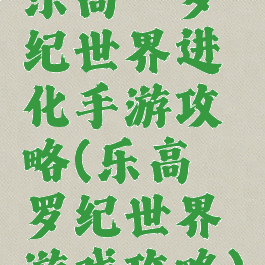 乐高 罗
纪世界进
化手游攻
略(乐高
罗纪世界
游戏攻略)